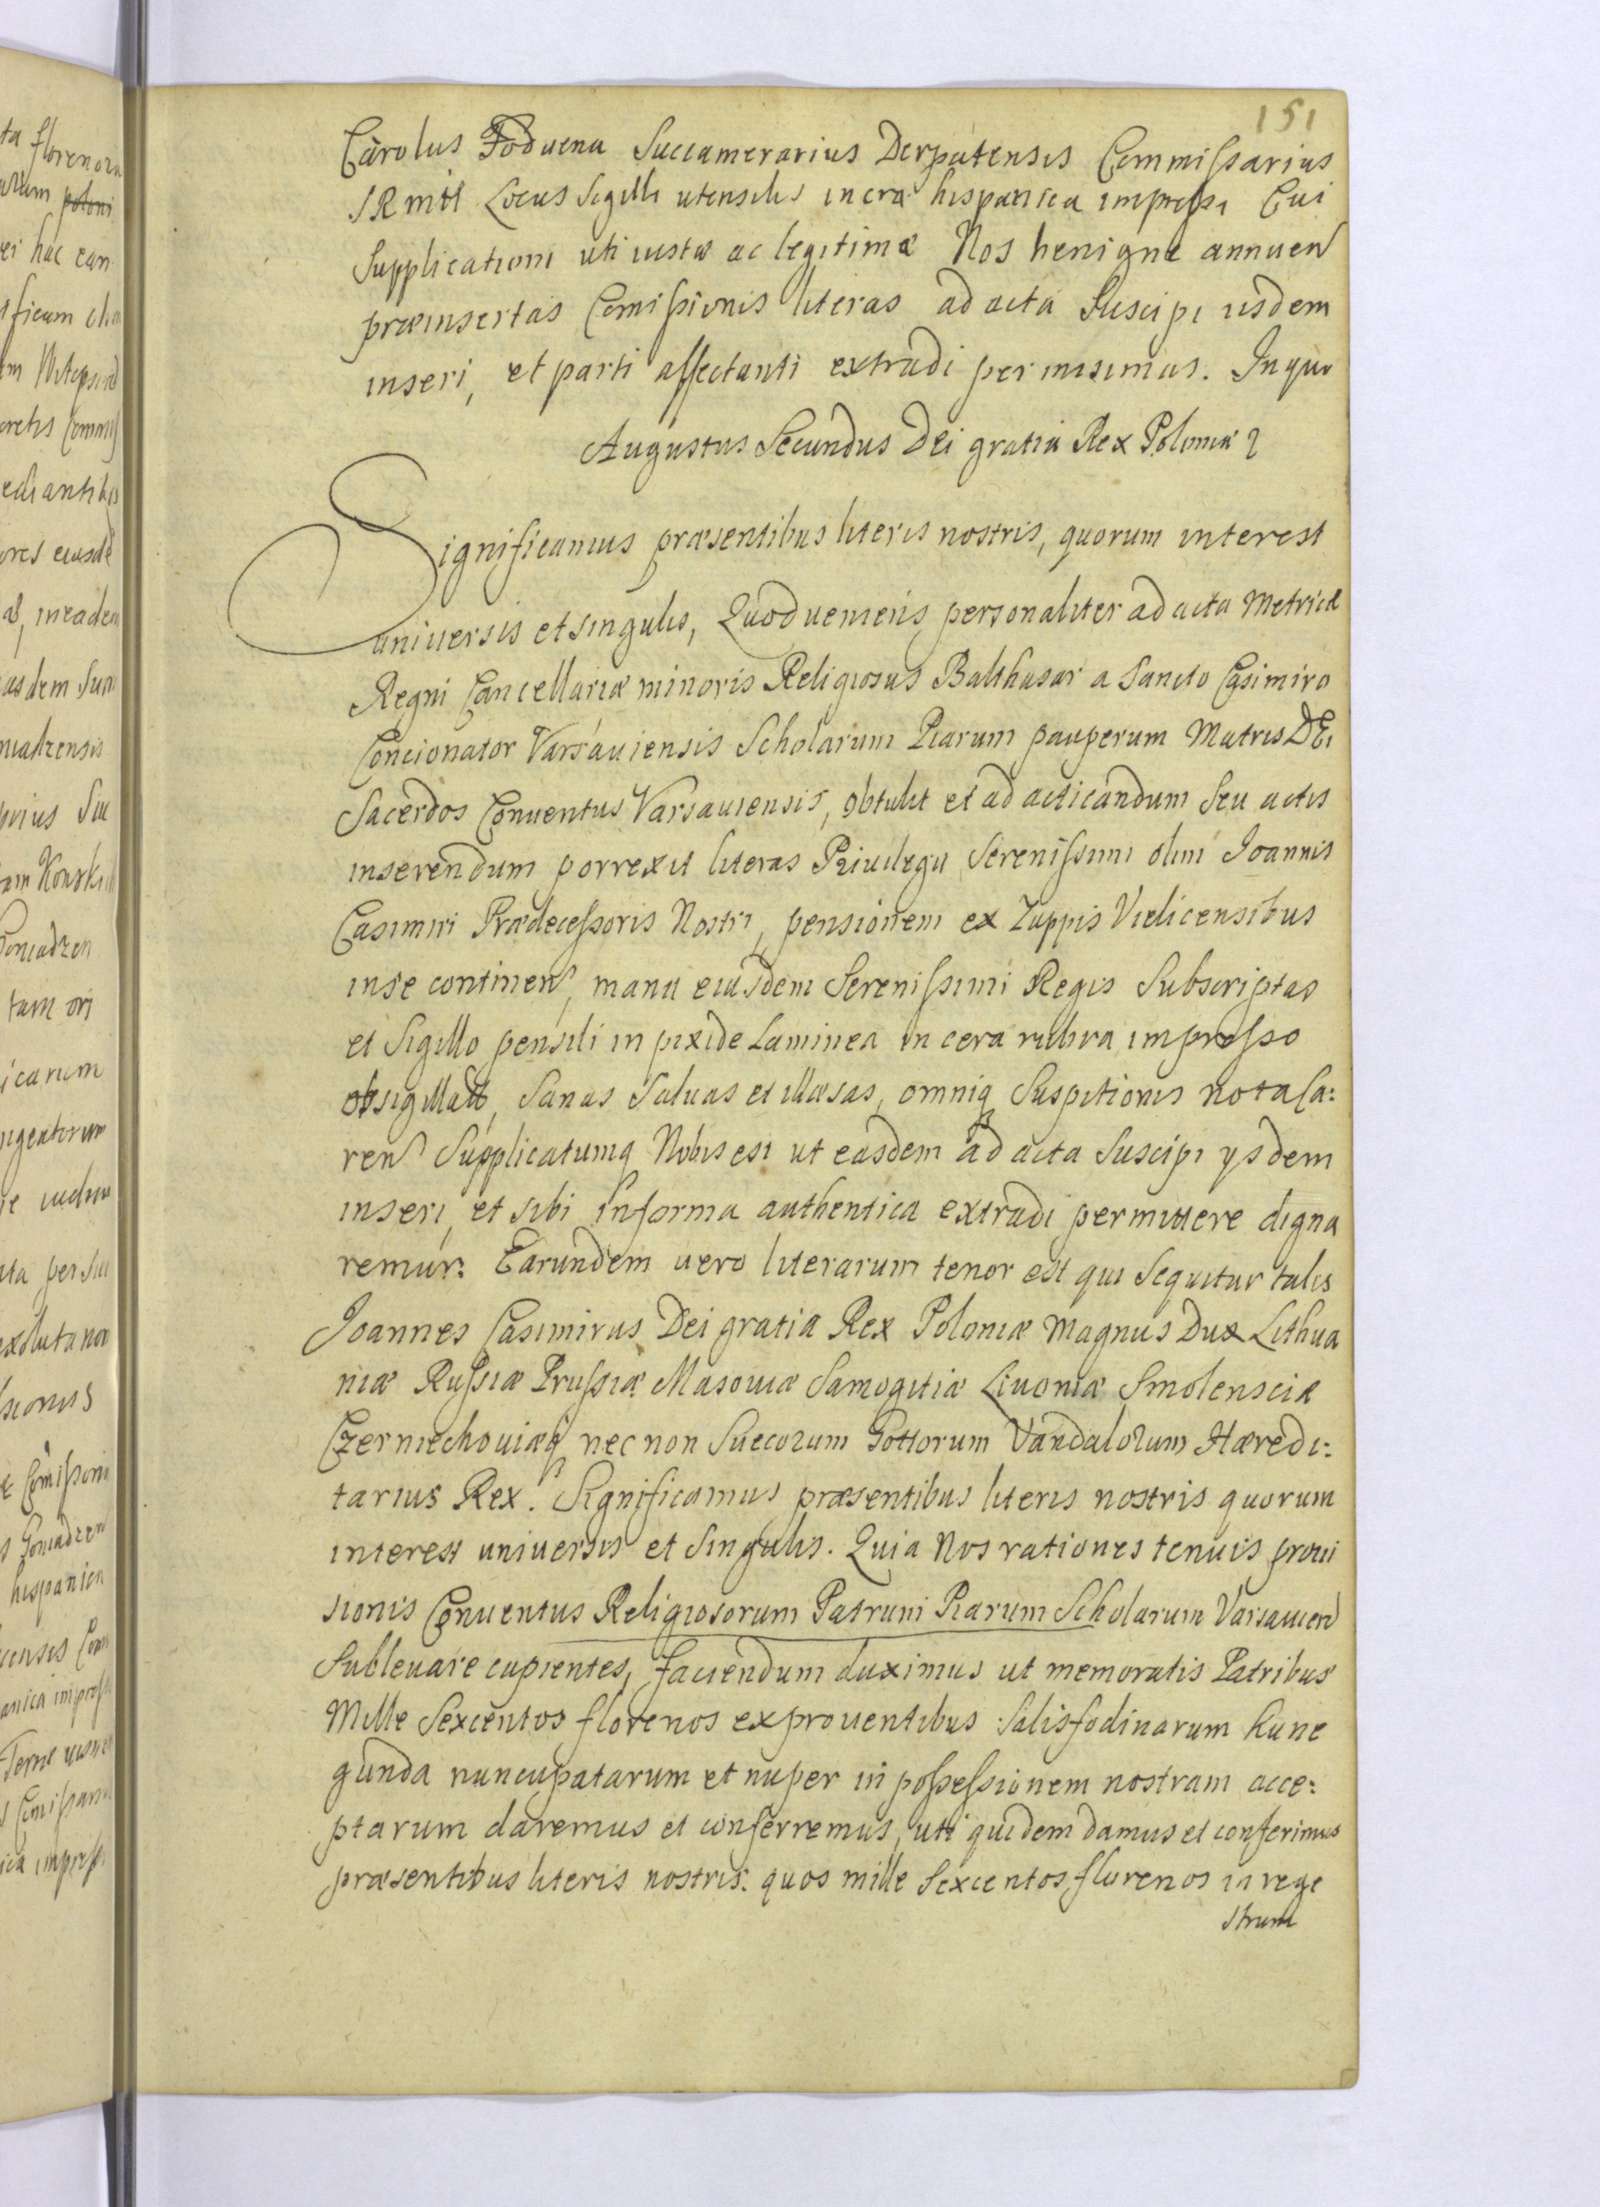 151
Carolus Foduena Succamerarius Derpatensis Commissarius
SRmtis Locus Sigilli utensilis in cera hispanica impressi Cui
Supplicationi uti iustæ ac legitimæ Nos benigne annuen
præinsertas Comissionis literas ad acta Suscipi iisdem
inseri, et parti affectanti extradi permisimus. In quo
Augustus Secundus Dei gratia Rex Poloniæ
Significamus præsentibus literis nostris, quorum interest
uniuersis et singulis, Quod ueniens personaliter ad acta Metricæ
Regni Cancellariæ minoris Religiosus Balthasar a Sancto Casimiro
Concionator Varsauiensis Scholarum Piarum pauperum Matris DEi
Sacerdos Conuentus Varsauiensis, obtulit et ad acticandum Seu actis
inserendum porrexit literas Priuilegii Serenissimi olim Joannis
Casimiri Prædecessoris Nostri, pensionem ex Zuppis Vielicensibus
in se continen, manu eiusdem Serenissimi Regis Subscriptas
et Sigillo pensili in pixide Laminea in cera rubra impresso
obsigillat, Sanas Saluas et illæsas, omniq Suspitionis nota ca:
ren Supplicatumq Nobis est ut easdem ad acta Suscipi ysdem
inseri, et sibi in forma authentica extradi permittere digna
remur: Earundem uero literarum tenor est qui Sequitur talis
Joannes Casimirus Dei gratia Rex Poloniæ Magnus Dux Lithua
niæ Russiæ Prussiæ Masouiæ Samogitiæ Liuoniæ Smolensciæ
Czerniechouiæq nec non Suecorum Gottorum Vandalorum Hæredi:
tarius Rex. Significamus præsentibus literis nostris quorum
interest uniuersis et Singulis. Quia Nos rationes tenuis proui
sionis Conuentus Religiosorum Patrum Piarum Scholarum Varsauien
Subleuare cupientes, faciendum duximus ut memoratis Patribus
Mille Sexcentos florenos ex prouentibus Salisfodinarum Kune
gunda nuncupatarum et nuper in possessionem nostram acce:
ptarum daremus et conferremus, uti quidem damus et conferimus
præsentibus literis nostris. quos mille Sexcentos florenos in rege
strum